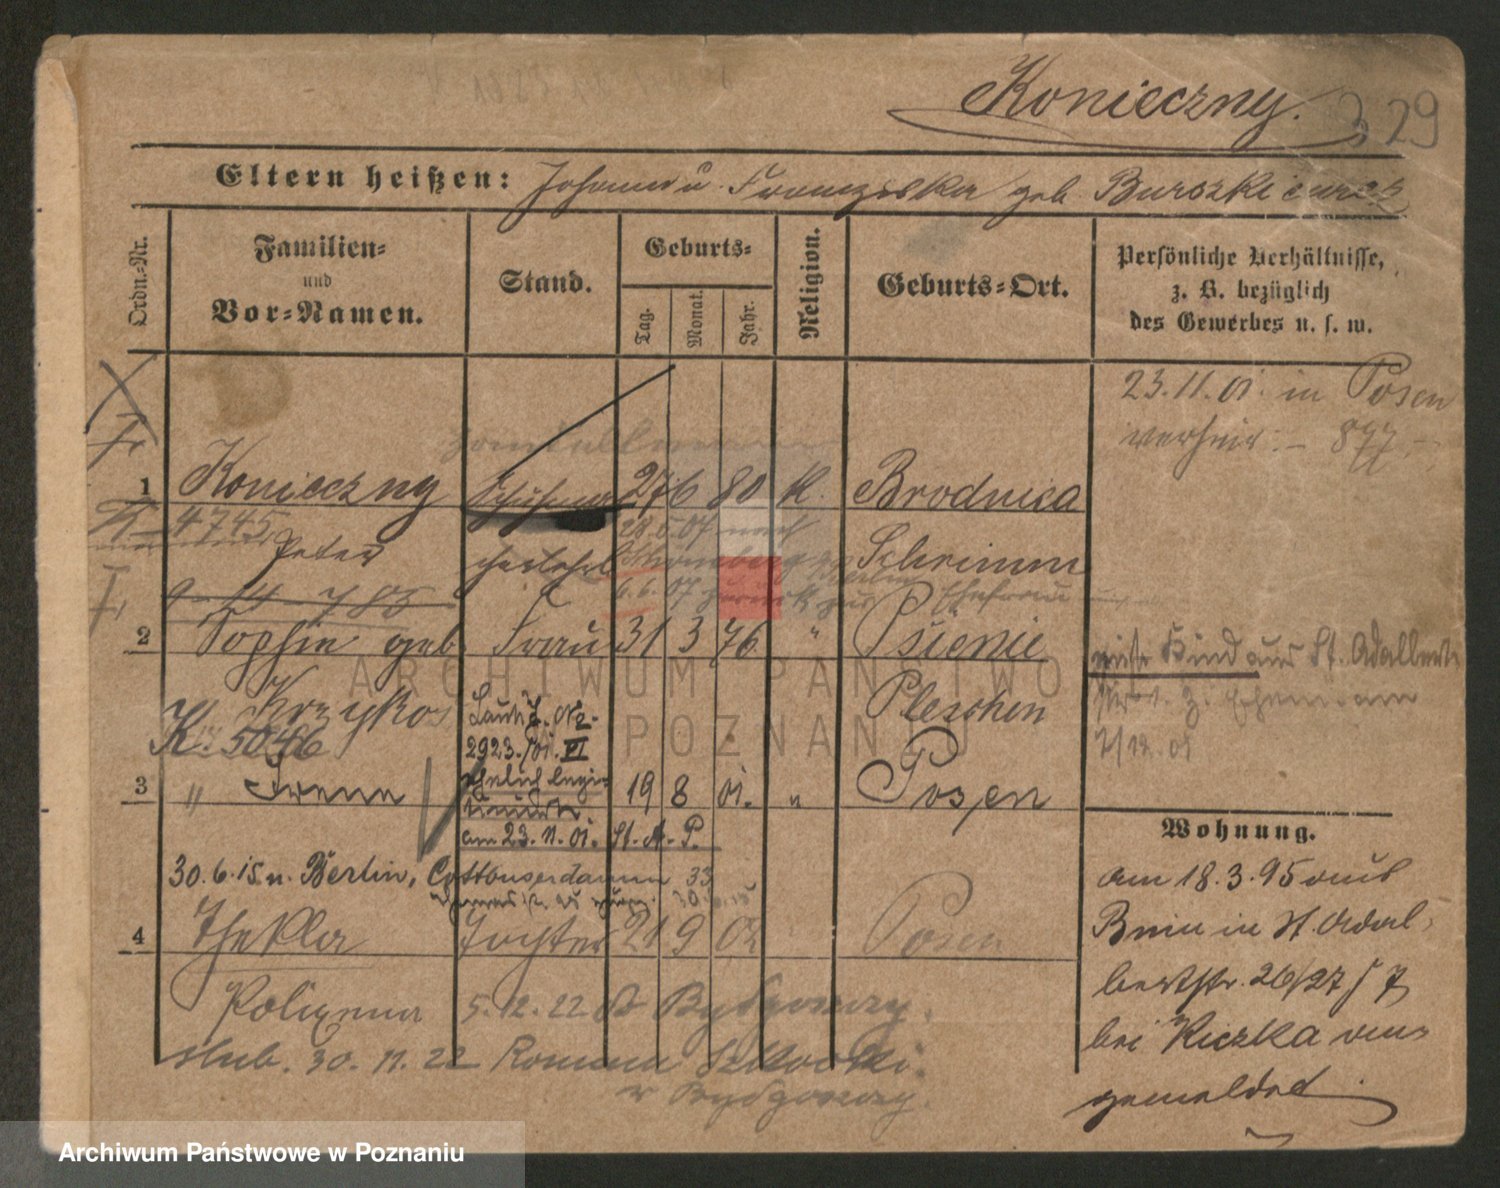 Konieczny. 329
Eltern heißen: Johann u. Franziska geb.
Ordn.-Nr.
Familien-
und
Vor-Namen.
Stand.
Geburts-
Tag.
Monat.
Jahr.
Religion.
Geburts-Ort.
Persönliche Verhältnisse,
z. B. bezüglich
des Gewerbes u. s. w.
23.11.01. in Posen
verheir. – 877.
1 Konieczny 27 6 80 k. Brodnica
K – 4745
28.5.07 nach
Peter Schrimm
6.6.07 zurück zur Ehefrau
9 – 14 – 785
2 Sophie geb. Frau 31 3 76 " Psienie
Krzyko Pleschen
Kind aus St. Adalbert
7/12.01
K 5046
Laut J. No
2923./01. VI
ehelich legi-
3 " Irene 19 8 01. " Posen
am 23.11.01. St. A. P.
30.6.15 n. Berlin, Cottbuserdamm 33
4 Thekla Tochter 21 9 02 Posen
Polixena 5.12.22 Bydgoszczy.
slub. 30.11.22 Roman
w Bydgoszczy.
Wohnung.
am 18.3.95 aus
Bnin in St. Adal-
bertstr. 26/27 J 7
bei Kiczka an-
gemeldet.
ARCHIWUM PAŃSTWO
POZNANIU
Archiwum Państwowe w Poznaniu